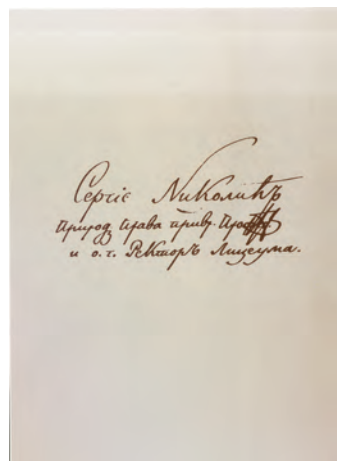 Сергіє Николићъ
Природ. Права привр. Проф.
и о. г. Ректоръ Лицеума.